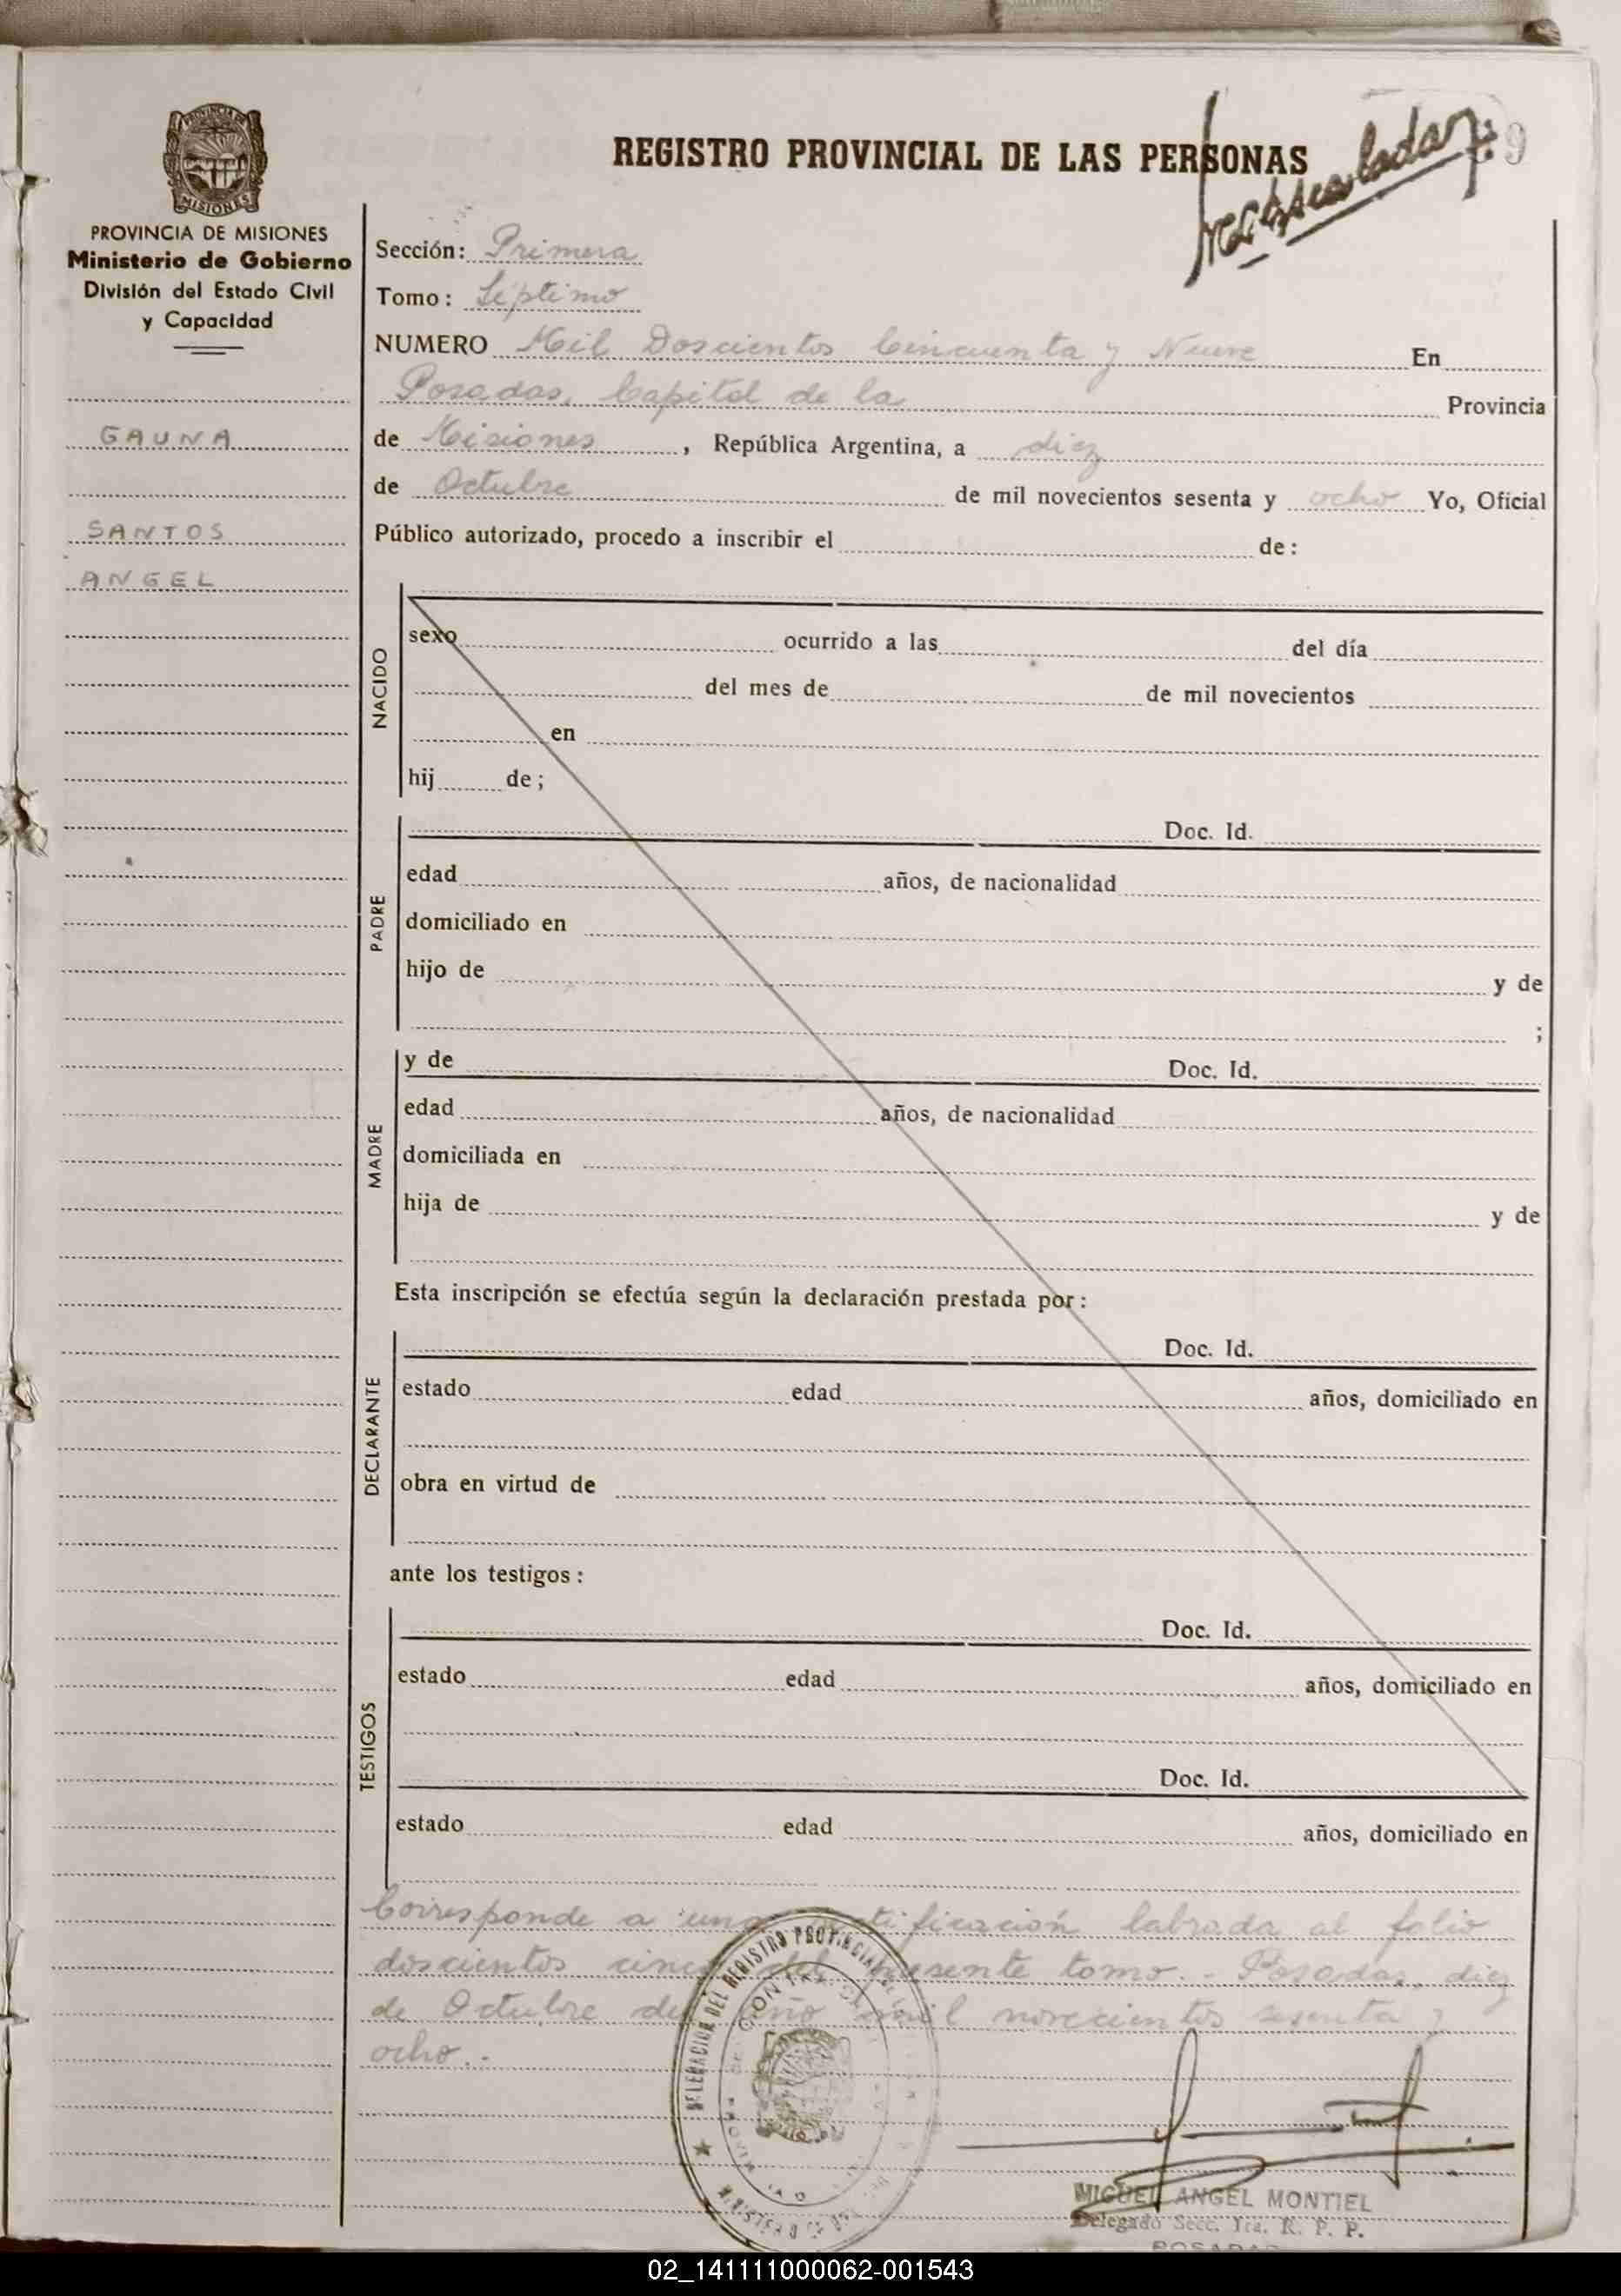 REGISTRO PROVINCIAL DE LAS PERSONAS
9
PROVINCIA DE
MISIONES
PROVINCIA DE MISIONES
Ministerio de Gobierno
División del Estado Civil
y Capacidad
GAUNA
SANTOS
ANGEL
Sección: Primera
Tomo: Séptimo
NUMERO Mil Doscientos Cincuenta y Nueve En
Posadas, Capital de la Provincia
de Misiones, República Argentina, a diez
de Octubre de mil novecientos sesenta y ocho Yo, Oficial
Público autorizado, procedo a inscribir el de:
NACIDO
sexo ocurrido a las del día
del mes de de mil novecientos
en
hij de;
PADRE
Doc. Id.
edad años, de nacionalidad
domiciliado en
hijo de y de
;
MADRE
y de Doc. Id.
edad años, de nacionalidad
domiciliada en
hija de y de
Esta inscripción se efectúa según la declaración prestada por:
DECLARANTE
Doc. Id.
estado edad años, domiciliado en
obra en virtud de
ante los testigos:
TESTIGOS
Doc. Id.
estado edad años, domiciliado en
Doc. Id.
estado edad años, domiciliado en
Corresponde a una labrada al folio
doscientos cinco del presente tomo.- Posadas, diez
de Octubre del año mil novecientos sesenta y
ocho.-
DELEGACION DEL REGISTRO PROVINCIAL DE
MIGUEL ANGEL MONTIEL
Delegado Secc. 1ra. R. P. P.
POSADAS
02_141111000062-001543